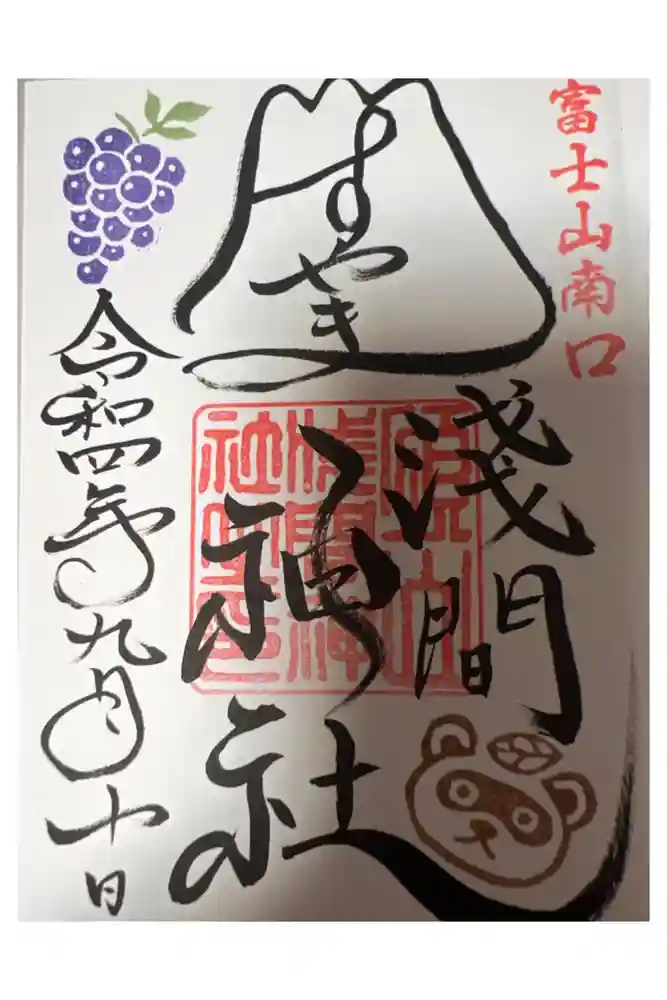 富士山南口
すやま
淺間
神社
令和四年九月十日